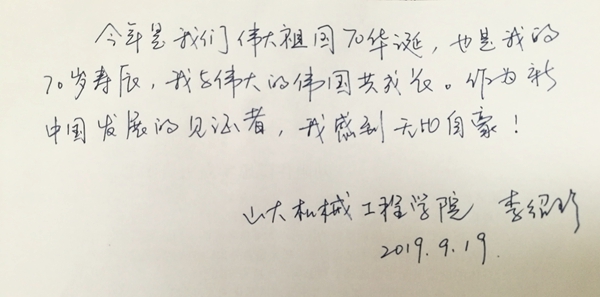 今年是我们伟大祖国70华诞，也是我的
70岁寿辰，我与伟大的伟国共成长。作为新
中国发展的见证者，我感到无比自豪！
山大机械工程学院 李绍珍
2019.9.19.